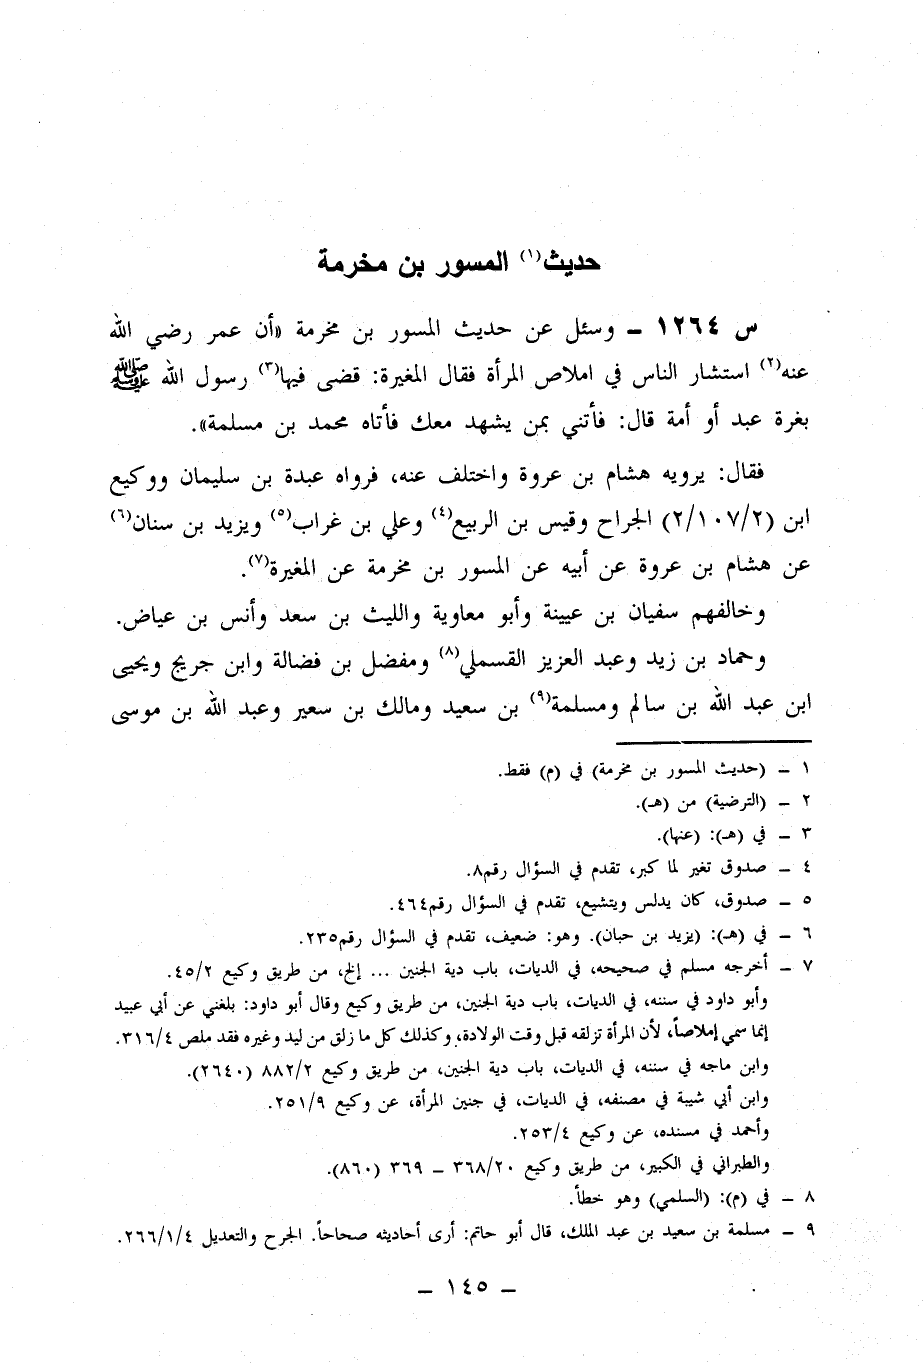 حديث(١) المسور بن مخرمة
س ١٢٦٤ ـ وسئل عن حديث المسور بن مخرمة «أن عمر رضي الله
عنه(٢) استشار الناس في املاص المرأة فقال المغيرة: قضى فيها(٣) رسول الله ﷺ
بغرة عبد أو أمة قال: فأتني بمن يشهد معك فأتاه محمد بن مسلمة».
فقال: يرويه هشام بن عروة واختلف عنه، فرواه عبدة بن سليمان ووكيع
ابن (٢/١٠٧/٢) الجراح وقيس بن الربيع(٤) وعلي بن غراب(٥) ويزيد بن سنان(٦)
عن هشام بن عروة عن أبيه عن المسور بن مخرمة عن المغيرة(٧).
وخالفهم سفيان بن عيينة وأبو معاوية والليث بن سعد وأنس بن عياض.
وحماد بن زيد وعبد العزيز القسملي(٨) ومفضل بن فضالة وابن جريج ويحيى
ابن عبد الله بن سالم ومسلمة(٩) بن سعيد ومالك بن سعير وعبد الله بن موسى
١ ـ (حديث المسور بن مخرمة) في (م) فقط.
٢ ـ (الترضية) من (هـ).
٣ ـ في (هـ): (عنها).
٤ ـ صدوق تغير لما كبر، تقدم في السؤال رقم٨.
٥ ـ صدوق، كان يدلس ويتشيع، تقدم في السؤال رقم٤٦٤.
٦ ـ في (هـ): (يزيد بن حبان). وهو: ضعيف، تقدم في السؤال رقم٢٣٥.
٧ ـ أخرجه مسلم في صحيحه، في الديات، باب دية الجنين ... إلخ، من طريق وكيع ٤٥/٢.
وأبو داود في سننه، في الديات، باب دية الجنين، من طريق وكيع وقال أبو داود: بلغني عن أبي عبيد
إنما سمي إملاصاً، لأن المرأة تزلقه قبل وقت الولادة، وكذلك كل ما زلق من ليد وغيره فقد ملص ٣١٦/٤.
وابن ماجه في سننه، في الديات، باب دية الجنين، من طريق وكيع ٨٨٢/٢ (٢٦٤٠).
وابن أبي شيبة في مصنفه، في الديات، في جنين المرأة، عن وكيع ٢٥١/٩.
وأحمد في مسنده، عن وكيع ٢٥٣/٤.
والطبراني في الكبير، من طريق وكيع ٣٦٨/٢٠ ـ ٣٦٩ (٨٦٠).
٨ ـ في (م): (السلمي) وهو خطأ.
٩ ـ مسلمة بن سعيد بن عبد الملك، قال أبو حاتم: أرى أحاديثه صحاحاً. الجرح والتعديل ٢٦٦/١/٤.
ـ ١٤٥ ـ